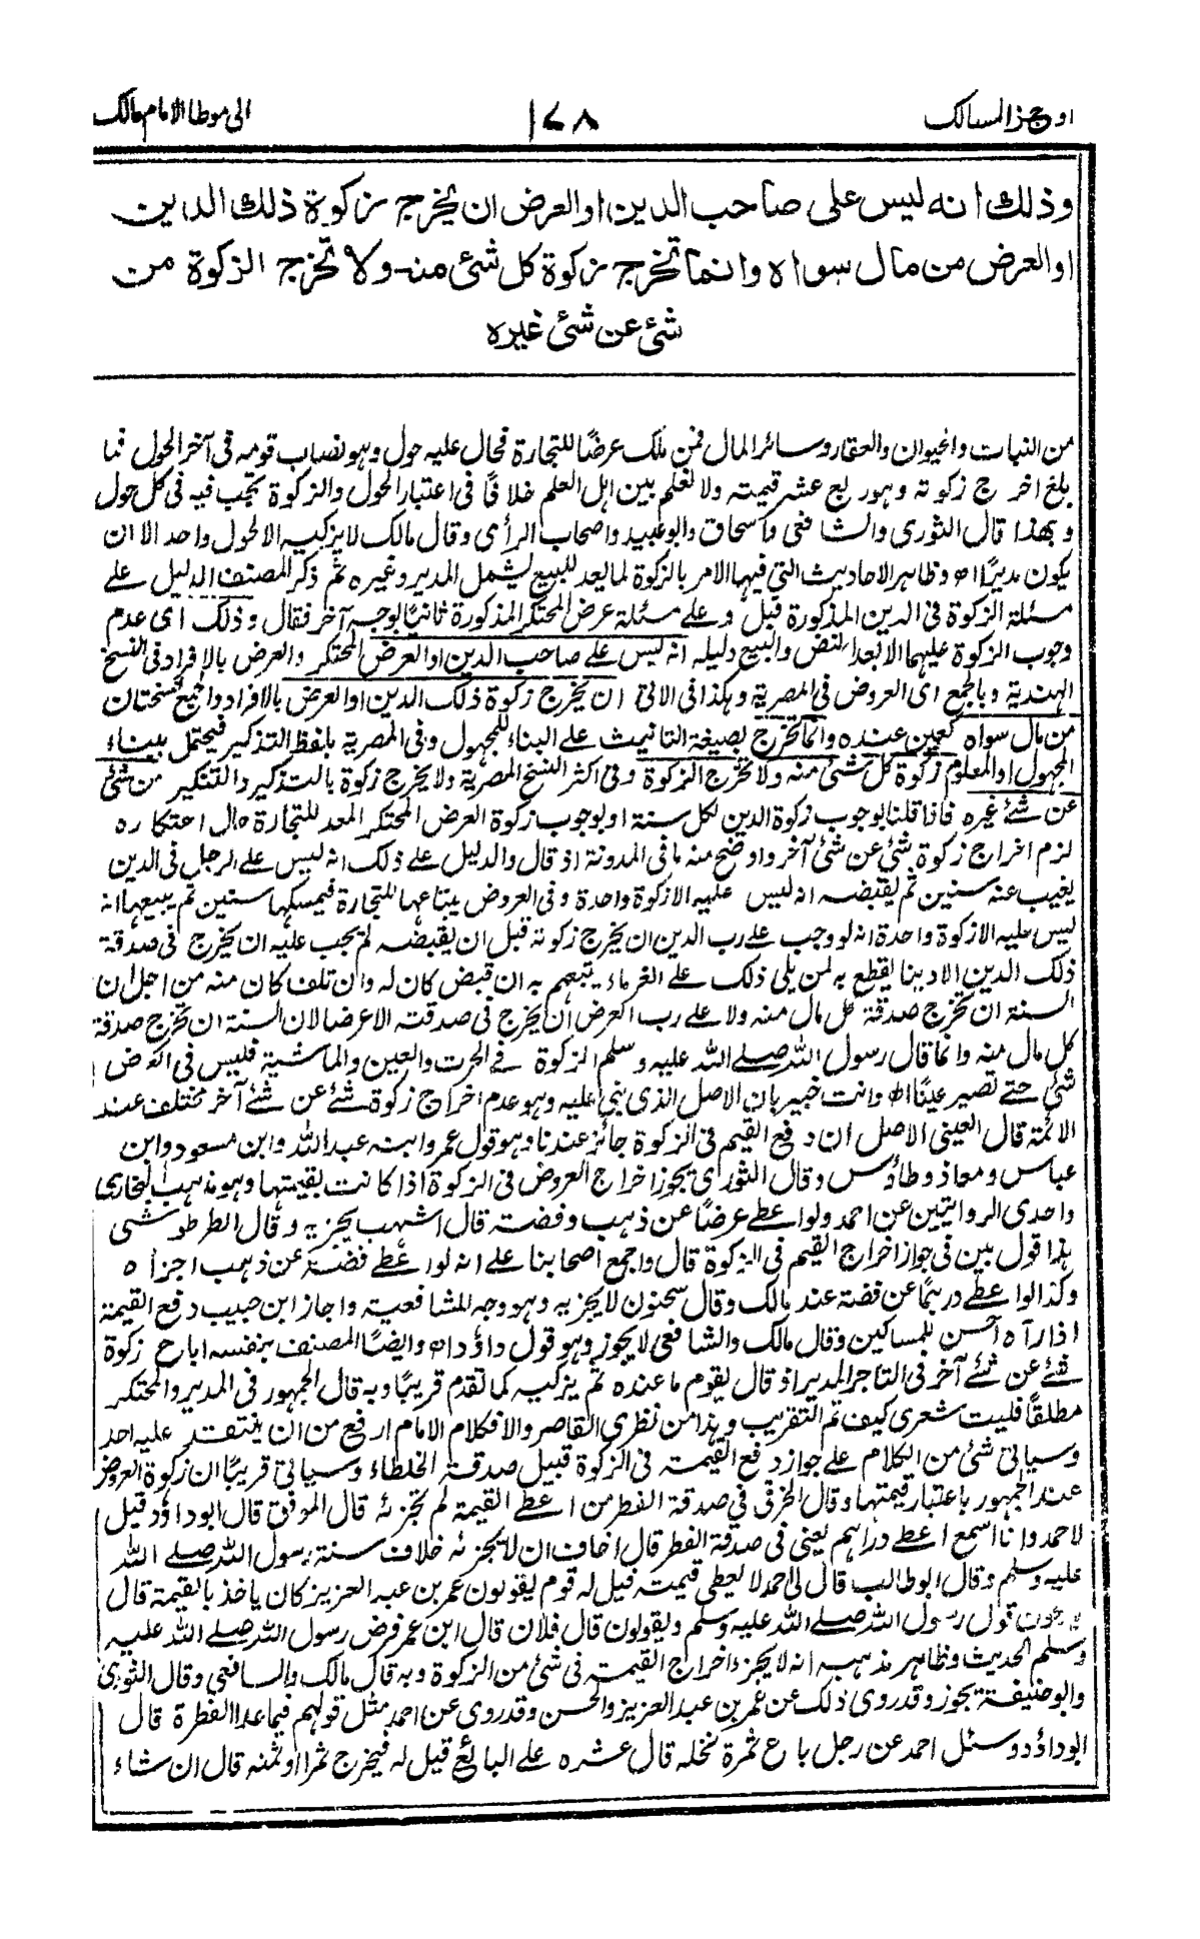 اوجز المسالك ١٧٨ الى موطا الامام مالك
وذلك انه ليس على صاحب الدين او العرض ان يخرج زكوة ذلك الدين
او العرض من مال سواه وانما تخرج زكوة كل شئ منه ولا تخرج الزكوة من
شئ عن شئ غيره
من النبات والحيوان والعقار وسائر المال فمن ملك عرضًا للتجارة فحال عليه حول وهو نصاب قومه فى آخر الحول فما
بلغ اخرج زكوته وهو ربع عشر قيمته ولا نعلم بين اهل العلم خلافًا فى اعتبار الحول والزكوة تجب فيه فى كل حول
وبهذا قال الثورى والشافعى واسحاق وابو عبيد واصحاب الرأى وقال مالك لا يزكيه الا لحول واحد الا ان
يكون مديرًا اه وظاهر الاحاديث التى فيها الامر بالزكوة لما يعد للبيع يشمل المدير وغيره ثم ذكر المصنف الدليل على
مسئلة الزكوة فى الدين المذكورة قبل وعلى مسئلة عرض المحتكر المذكورة ثانيًا بوجه آخر فقال وذلك اى عدم
وجوب الزكوة عليهما الا بعد النض والبيع دليله انه ليس على صاحب الدين او العرض المحتكر والعرض بالافراد فى النسخ
الهندية وبالجمع اى العروض فى المصرية وهكذا فى الاتى ان يخرج زكوة ذلك الدين او العرض بالافراد والجمع نسختان
من مال سواه كعين عنده وانما تخرج بصيغة التانيث على البناء للمجهول وفى المصرية بلفظ التذكير فيحتمل ببناء
المجهول او المعلوم زكوة كل شئ منه ولا تخرج الزكوة وفى اكثر النسخ المصرية ولا يخرج زكوة بالتذكير والتنكير من شئ
عن شئ غيره فاذا قلنا بوجوب زكوة الدين لكل سنة او بوجوب زكوة العرض المحتكر المعد للتجارة حال احتكاره
لزم اخراج زكوة شئ عن شئ آخر واوضح منه ما فى المدونة اذ قال والدليل على ذلك انه ليس على الرجل فى الدين
يغيب عنه سنين ثم يقبضه انه ليس عليه الا زكوة واحدة وفى العروض يبتاعها للتجارة فيمسكها سنين ثم يبيعها انه
ليس عليه الا زكوة واحدة انه لو وجب على رب الدين ان يخرج زكوته قبل ان يقبضه لم يجب عليه ان يخرج فى صدقة
ذلك الدين الا دينا يقطع به لمن يلى ذلك على الغرماء يتبعهم به ان قبض كان له وان تلف كان منه من اجل ان
السنة ان تخرج صدقة كل مال منه ولا على رب العرض ان يخرج فى صدقته الا عرضا لان السنة ان تخرج صدقة
كل مال منه وانما قال رسول الله صلى الله عليه وسلم الزكوة فى الحرث والعين والماشية فليس فى العرض
شئ حتى تصير عينًا اه وانت خبير بان الاصل الذى بنى عليه وهو عدم اخراج زكوة شئ عن شئ آخر مختلف عند
الائمة قال العينى الاصل ان دفع القيم فى الزكوة جائز عندنا وهو قول عمر وابنه عبد الله وابن مسعود وابن
عباس ومعاذ وطاؤس وقال الثورى يجوز اخراج العروض فى الزكوة اذا كانت بقيمتها وهو مذهب البخارى
واحدى الروايتين عن احمد ولو اعطى عرضًا عن ذهب وفضة قال اشهب يجزيه وقال الطرطوشى
هذا قول بين فى جواز اخراج القيم فى الزكوة قال واجمع اصحابنا على انه لو اعطى فضة عن ذهب اجزاه
وكذا لو اعطى درهمًا عن فضة عند مالك وقال سحنون لا يجزيه وهو وجه للشافعية واجاز ابن حبيب دفع القيمة
اذا رآه احسن للمساكين وقال مالك والشافعى لا يجوز وهو قول داؤد اه وايضًا المصنف بنفسه اباح زكوة
شئ عن شئ آخر فى التاجر المدير اذ قال يقوم ما عنده ثم يزكيه كما تقدم قريبًا وبه قال الجمهور فى المدير والمحتكر
مطلقًا فليت شعرى كيف تم التقريب وهذا من نظرى القاصر والا فكلام الامام ارفع من ان ينتقد عليه احد
وسياتى شئ من الكلام على جواز دفع القيمة فى الزكوة قبيل صدقة الخلطاء وسياتى قريبًا ان زكوة العروض
عند الجمهور باعتبار قيمتها وقال الخرقى فى صدقة الفطر من اعطى القيمة لم تجزئه قال الموفق قال ابو داؤد قيل
لاحمد وانا اسمع اعطى دراهم يعنى فى صدقة الفطر قال اخاف ان لا يجزئه خلاف سنة رسول الله صلى الله
عليه وسلم وقال ابو طالب قال لى احمد لا يعطى قيمته قيل له قوم يقولون عمر بن عبد العزيز كان ياخذ بالقيمة قال
يدعون قول رسول الله صلى الله عليه وسلم ويقولون قال فلان قال ابن عمر فرض رسول الله صلى الله عليه
وسلم الحديث وظاهر مذهبه انه لا يجزء اخراج القيمة فى شئ من الزكوة وبه قال مالك والشافعى وقال الثورى
وابو حنيفة يجوز وقد روى ذلك عن عمر بن عبد العزيز والحسن وقد روى عن احمد مثل قولهم فيما عدا الفطرة قال
ابو داؤد وسئل احمد عن رجل باع ثمرة نخله قال عشره على البائع قيل له فيخرج ثمرا او ثمنه قال ان شاء